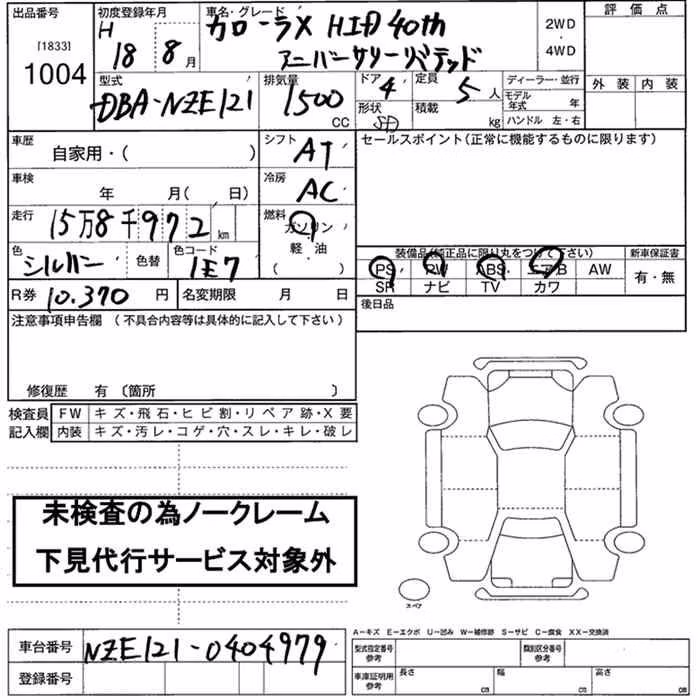 出品番号 初度登録年月 車名・グレード 2WD ・ 4WD 評価点
[1833] 1004 H 18 8 月 カローラX HID 40th
アニバーサリーリミテッド
外装 内装
型式 DBA-NZE121 排気量 1500 CC ドア 4 定員 5 人 ディーラー・並行
形状 SD 積載 kg モデル年式 年
ハンドル 左・右
車歴 自家用・( ) シフト AT セールスポイント(正常に機能するものに限ります)
車検 年 月( 日) 冷房 AC
走行 15万8千972 km 燃料 ガソリン・軽・油 ( )
色 シルバー 色替 色コード 1E7
装備品(純正品に限り丸をつけて下さい) 新車保証書
PS PW ABS エアB AW 有・無
SR ナビ TV カワ
R券 10.370 円 名変期限 月 日 後日品
注意事項申告欄 (不具合内容等は具体的に記入して下さい)
修復歴 有 〔箇所 〕
検査員 FW キズ・飛石・ヒビ割・リペア跡・X要
記入欄 内装 キズ・汚レ・コゲ・穴・スレ・キレ・破レ
未検査の為ノークレーム
下見代行サービス対象外
スペア
A-キズ E-エクボ U-凹み W-補修跡 S-サビ C-腐食 XX-交換済
車台番号 NZE121-0404979
登録番号
型式指定番号 参考 類別区分番号 参考
車庫証明用 参考 長さ cm 幅 cm 高さ cm